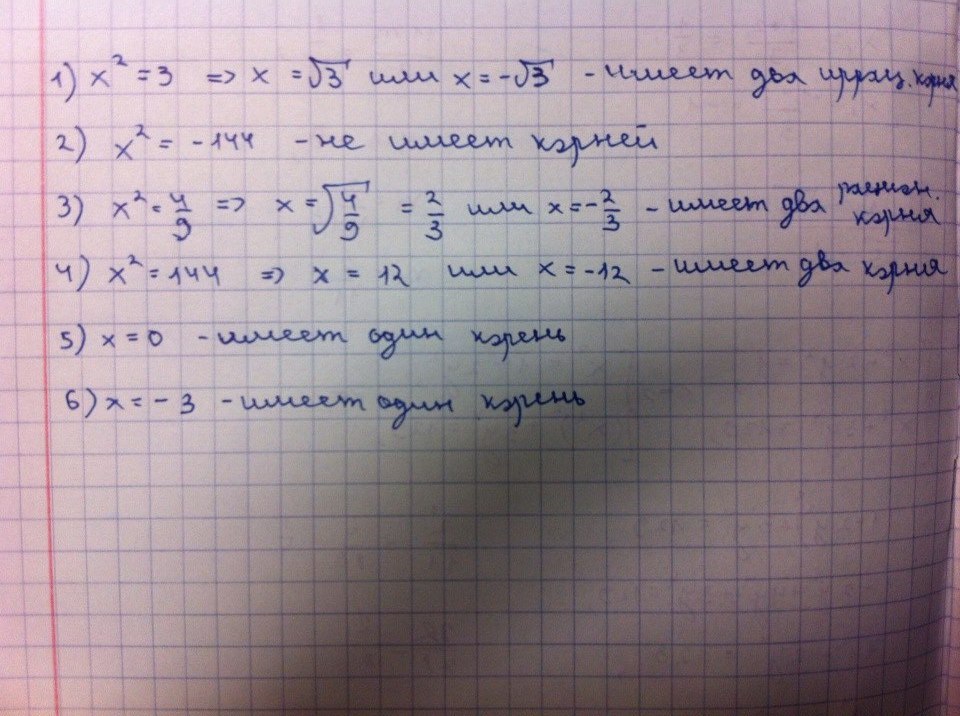 1) x² = 3 => x = √3 или x = -√3 - имеет два иррац. корня
2) x² = -144 - не имеет корней
3) x² = 4/9 => x = √4/9 = 2/3 или x = -2/3 - имеет два рацион. корня
4) x² = 144 => x = 12 или x = -12 - имеет два корня
5) x = 0 - имеет один корень
6) x = -3 - имеет один корень